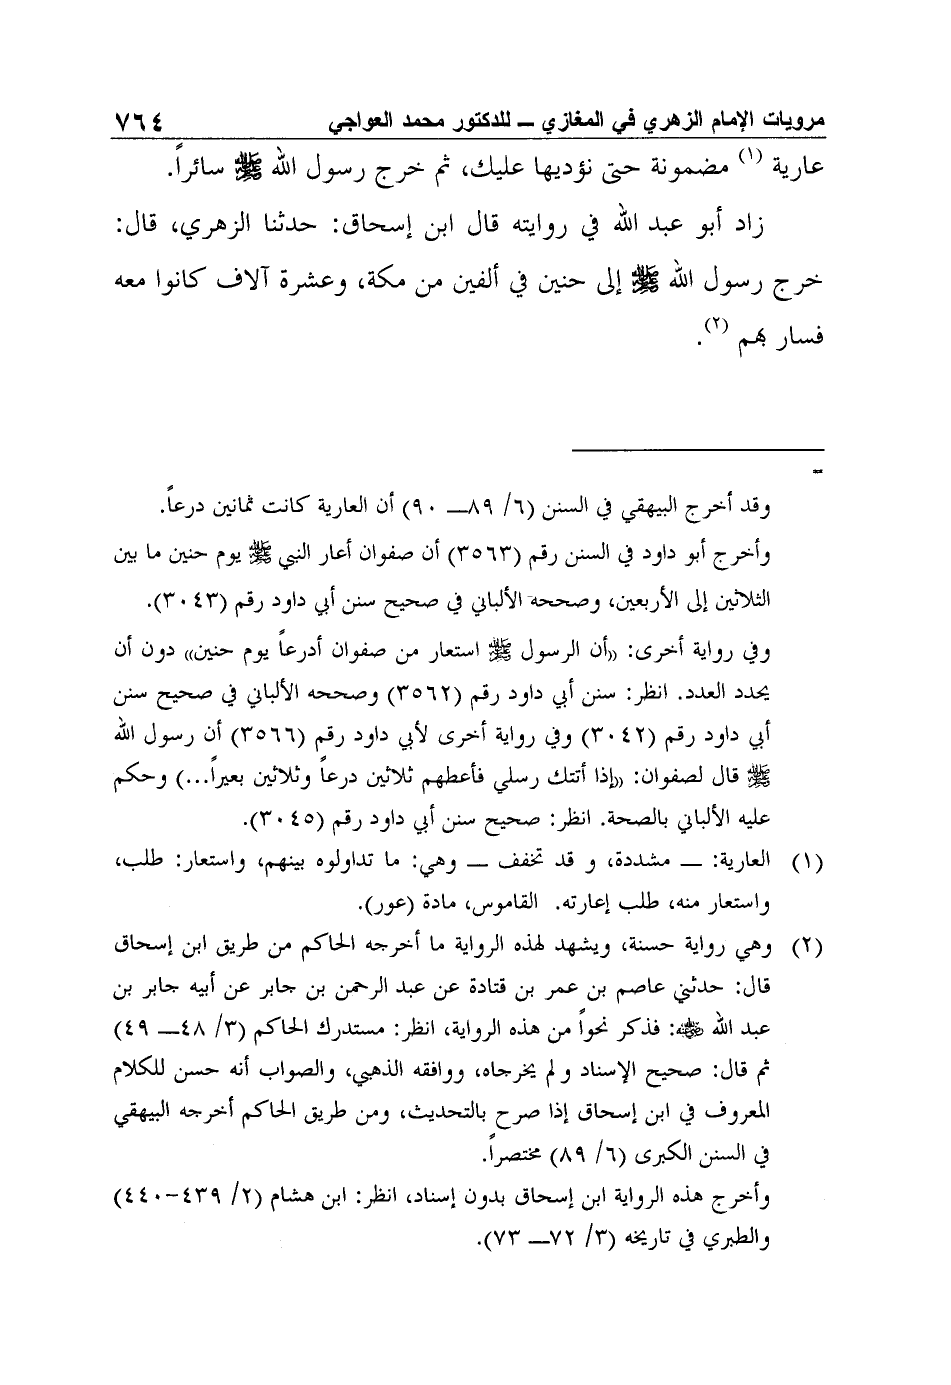 مرويات الإمام الزهري في المغازي ــ للدكتور محمد العواجي ٧٦٤
عارية (١) مضمونة حتى نؤديها عليك، ثم خرج رسول الله ﷺ سائراً.
زاد أبو عبد الله في روايته قال ابن إسحاق: حدثنا الزهري، قال:
خرج رسول الله ﷺ إلى حنين في ألفين من مكة، وعشرة آلاف كانوا معه
فسار بهم (٢).
=
وقد أخرج البيهقي في السنن (٦/ ٨٩ــ ٩٠) أن العارية كانت ثمانين درعاً.
وأخرج أبو داود في السنن رقم (٣٥٦٣) أن صفوان أعار النبي ﷺ يوم حنين ما بين
الثلاثين إلى الأربعين، وصححه الألباني في صحيح سنن أبي داود رقم (٣٠٤٣).
وفي رواية أخرى: ((أن الرسول ﷺ استعار من صفوان أدرعاً يوم حنين)) دون أن
يحدد العدد. انظر: سنن أبي داود رقم (٣٥٦٢) وصححه الألباني في صحيح سنن
أبي داود رقم (٣٠٤٢) وفي رواية أخرى لأبي داود رقم (٣٥٦٦) أن رسول الله
ﷺ قال لصفوان: ((إذا أتتك رسلي فأعطهم ثلاثين درعاً وثلاثين بعيراً...) وحكم
عليه الألباني بالصحة. انظر: صحيح سنن أبي داود رقم (٣٠٤٥).
(١) العارية: ــ مشددة، و قد تخفف ــ وهي: ما تداولوه بينهم، واستعار: طلب،
واستعار منه، طلب إعارته. القاموس، مادة (عور).
(٢) وهي رواية حسنة، ويشهد لهذه الرواية ما أخرجه الحاكم من طريق ابن إسحاق
قال: حدثني عاصم بن عمر بن قتادة عن عبد الرحمن بن جابر عن أبيه جابر بن
عبد الله ﵁: فذكر نحواً من هذه الرواية، انظر: مستدرك الحاكم (٣/ ٤٨ــ ٤٩)
ثم قال: صحيح الإسناد و لم يخرجاه، ووافقه الذهبي، والصواب أنه حسن للكلام
المعروف في ابن إسحاق إذا صرح بالتحديث، ومن طريق الحاكم أخرجه البيهقي
في السنن الكبرى (٦/ ٨٩) مختصراً.
وأخرج هذه الرواية ابن إسحاق بدون إسناد، انظر: ابن هشام (٢/ ٤٣٩-٤٤٠)
والطبري في تاريخه (٣/ ٧٢ــ ٧٣).